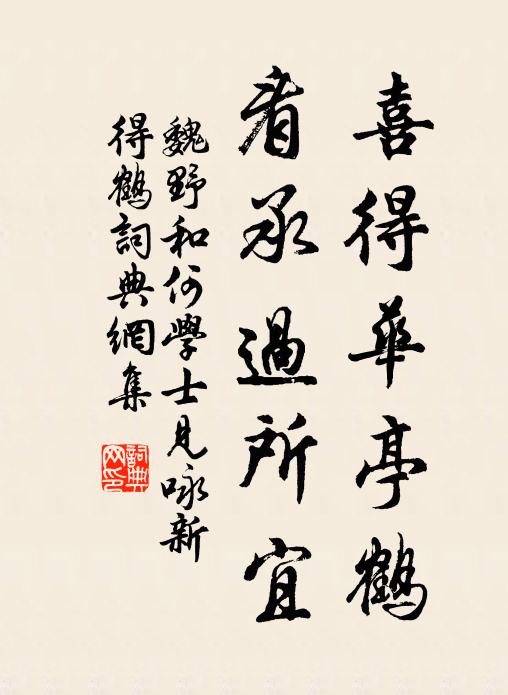 喜得華亭鶴
看承過所宜
魏野和何學士見咏新
得鶴詞典網集
詞典
網印